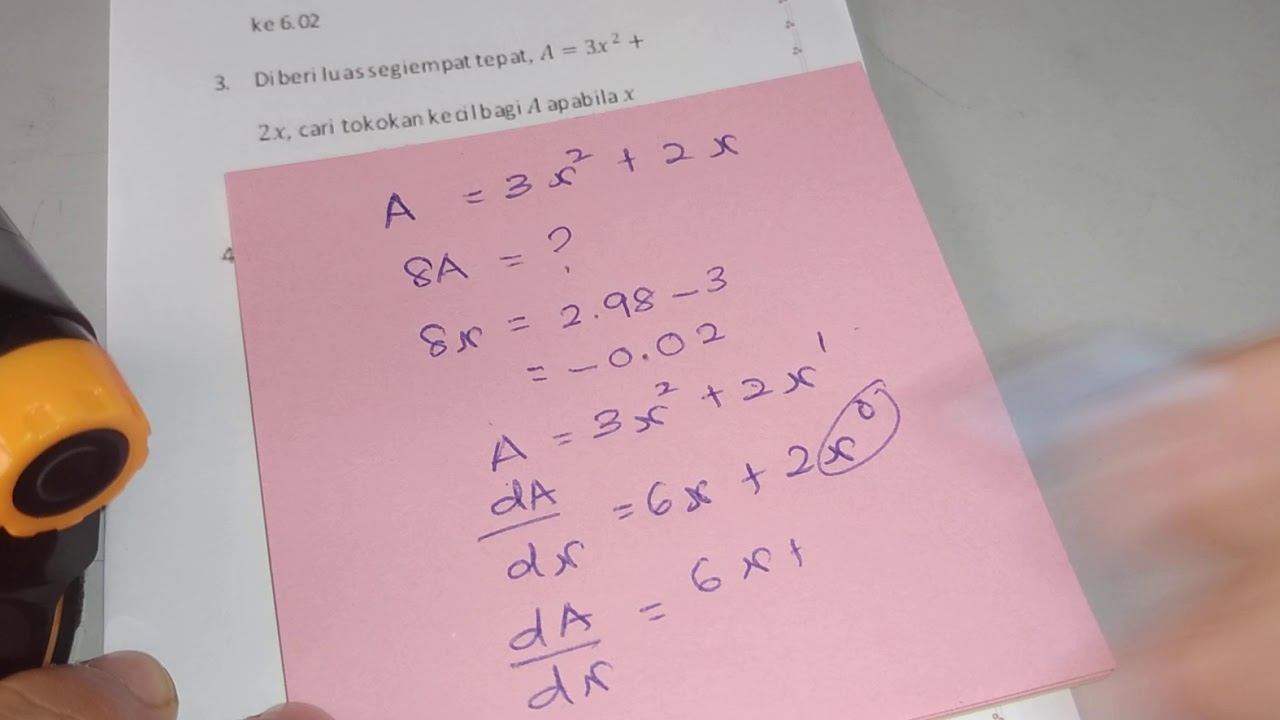 ke 6.02
3. Diberi luas segiempat tepat, A = 3x² +
2x, cari tokokan kecil bagi A apabila x
4
A = 3x² + 2x
δA = ?
δx = 2.98 - 3
= -0.02
A = 3x² + 2x¹
dA/dx = 6x + 2x⁰
dA/dx = 6x +